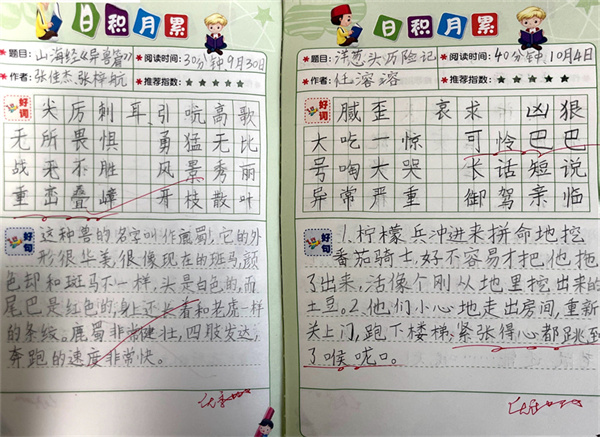 日积月累
题目:山海经《异兽篇》 阅读时间:30分钟 9月30日
作者:张佳杰、张梓航 推荐指数:★★★★★
好词
尖厉刺耳、引吭高歌
无所畏惧 勇猛无比
战无不胜 风景秀丽
重峦叠嶂 牙枝散叶
好句
这种兽的名字叫作鹿蜀,它的外
形很华美,很像现在的班马,颜
色却和斑马不一样,头是白色的,而
尾巴是红色的,身上还长着和老虎一样
的条纹。鹿蜀非常健壮,四肢发达,
奔跑的速度非常快。
日积月累
题目:洋葱头历险记 阅读时间:40分钟 10月4日
作者:任溶溶 推荐指数:★★★★★
好词
臧歪 哀求 凶狠
大吃一惊 可怜巴巴
号啕大哭 长话短说
异常严重 御驾亲临
好句
1.柠檬兵冲进来拼命地挖
番茄骑士,好不容易才把他拖
了出来,活像个刚从地里挖出来的
土豆。2.他们小心地走出房间,重新
关上门,跑下楼梯,紧张得心都跳到
了喉咙口。